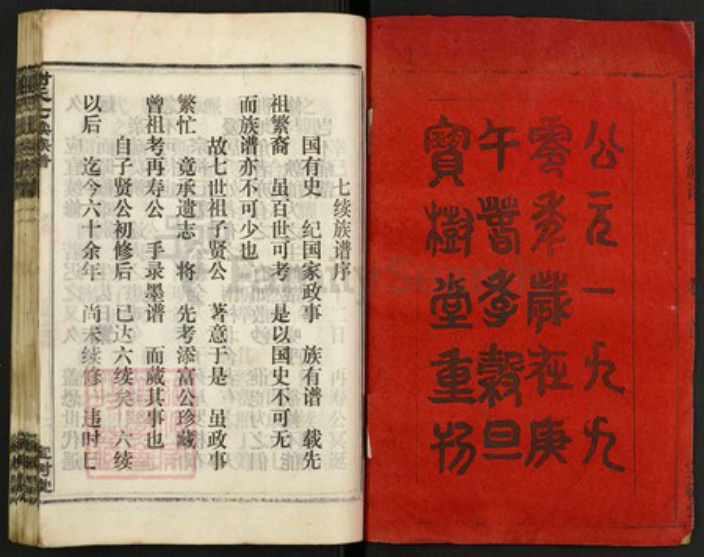 公元一九九
零年歲在庚
午蒿季穀旦
寶樹堂重刊
七续族谱序
国有史 纪国家政事 族有谱 载先
祖繁裔 虽百世可考 是以国史不可无
而族谱亦不可少也
故七世祖子贤公 著意于是 虽政事
繁忙 竟承遗志 将 先考添富公珍藏
曾祖考再寿公 手录墨谱 而藏其事也
自子贤公初修后 已达六续矣 六续
以后 迄今六十余年 尚未续修 违时已